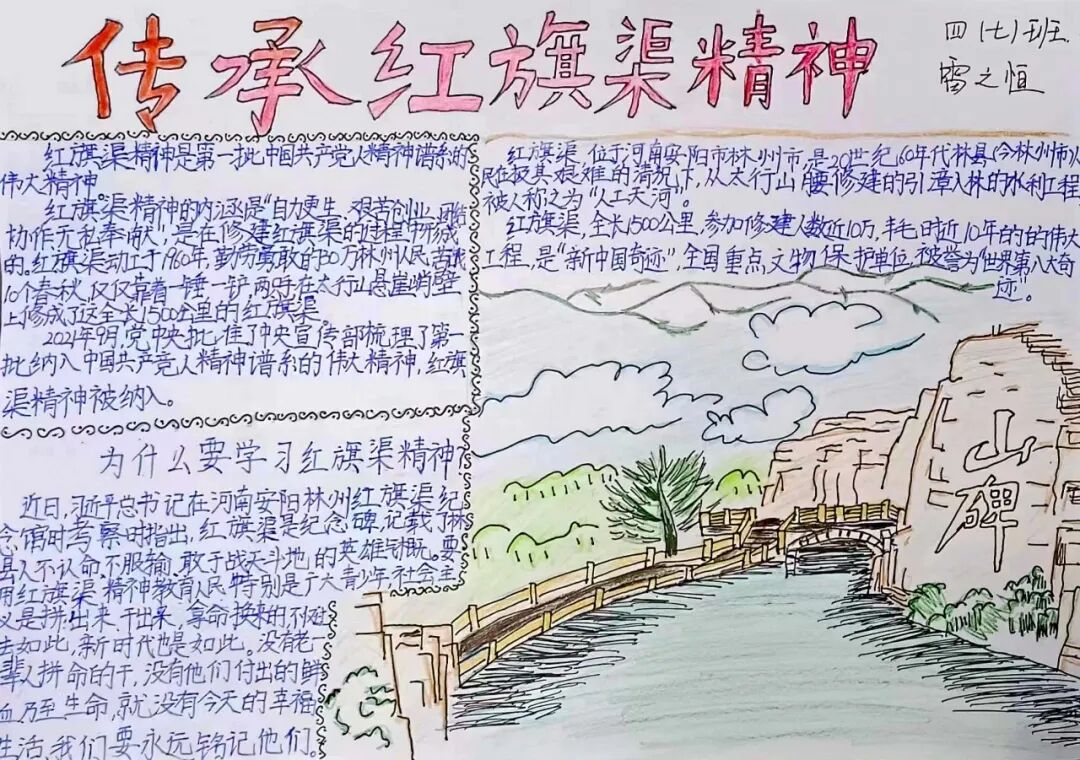 传承红旗渠精神
四（七）班
雷之恒
红旗渠精神是第一批中国共产党人精神谱系的
伟大精神
红旗渠精神的内涵是“自力更生、艰苦创业、团结
协作无私奉献”，是在修建红旗渠的过程中形成
的。红旗渠动工于1960年，勤劳勇敢的30万林州人民，苦战
10个春秋，仅仅靠着一锤一铲，两只手在太行山悬崖峭壁
上修成了这全长1500公里的红旗渠
2021年9月，党中央批准了中央宣传部梳理了第一
批纳入中国共产党人精神谱系的伟大精神，红旗
渠精神被纳入。
为什么要学习红旗渠精神？
近日，习近平总书记在河南安阳林州红旗渠纪
念馆时考察时指出，红旗渠是纪念碑，记载了林
县人不认命不服输、敢于战天斗地的英雄气概。要
用红旗渠精神教育人民特别是广大青少年，社会主
义是拼出来干出来，拿命换来的不仅过
去如此，新时代也是如此。没有老一
辈人拼命的干，没有他们付出的鲜
血乃至生命，就没有今天的幸福
生活，我们要永远铭记他们。
红旗渠，位于河南安阳市林州市，是20世纪60年代林县（今林州市）人
民在极其艰难的情况下，从太行山腰修建的引漳入林的水利工程
被人称之为“人工天河”。
红旗渠，全长1500公里，参加修建人数近10万，耗时近10年的的伟大
工程，是“新中国奇迹”，全国重点文物保护单位，被誉为“世界第八大奇
迹”。
山碑